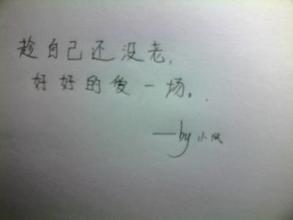 趁自己还没老,
好好的爱一场。
——by 小